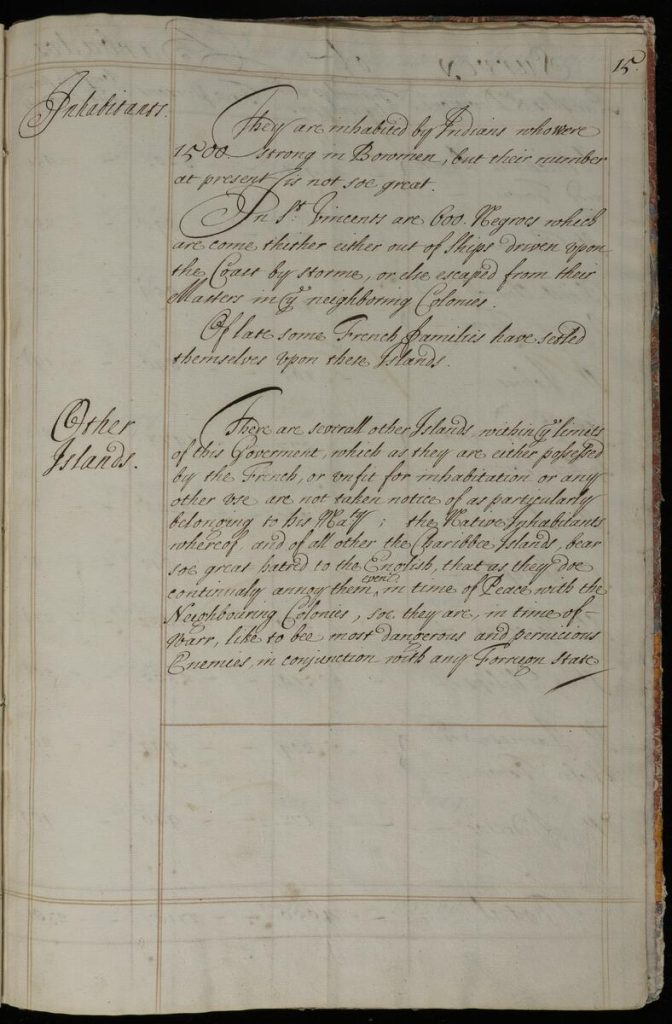 15.
Inhabitants.
They are inhabited by Indians who were
1500 strong in Bowmen, but their number
at present is not soe great.
In St. Vincents are 600. Negroes which
are come thither either out of Ships driven upon
the Coast by storme, or else escaped from their
Masters in ye neighboring Colonies.
Of late some French Families have setled
themselves upon these Islands.
Other
Islands.
There are severall other Islands, within ye limits
of this Goverment, which as they are either possessed
by the French, or unfit for inhabitation or any
other use are not taken notice of as particularly
belonging to his Maty; the Native Inhabitants
whereof, and of all other the Charibbee Islands, bear
soe great hatred to the English, that as they doe
continualy annoy them, even in time of Peace with the
Neighbouring Colonies, soe they are, in time of
Warr, like to bee most dangerous and pernicious
Enemies, in conjunction with any Forreign State